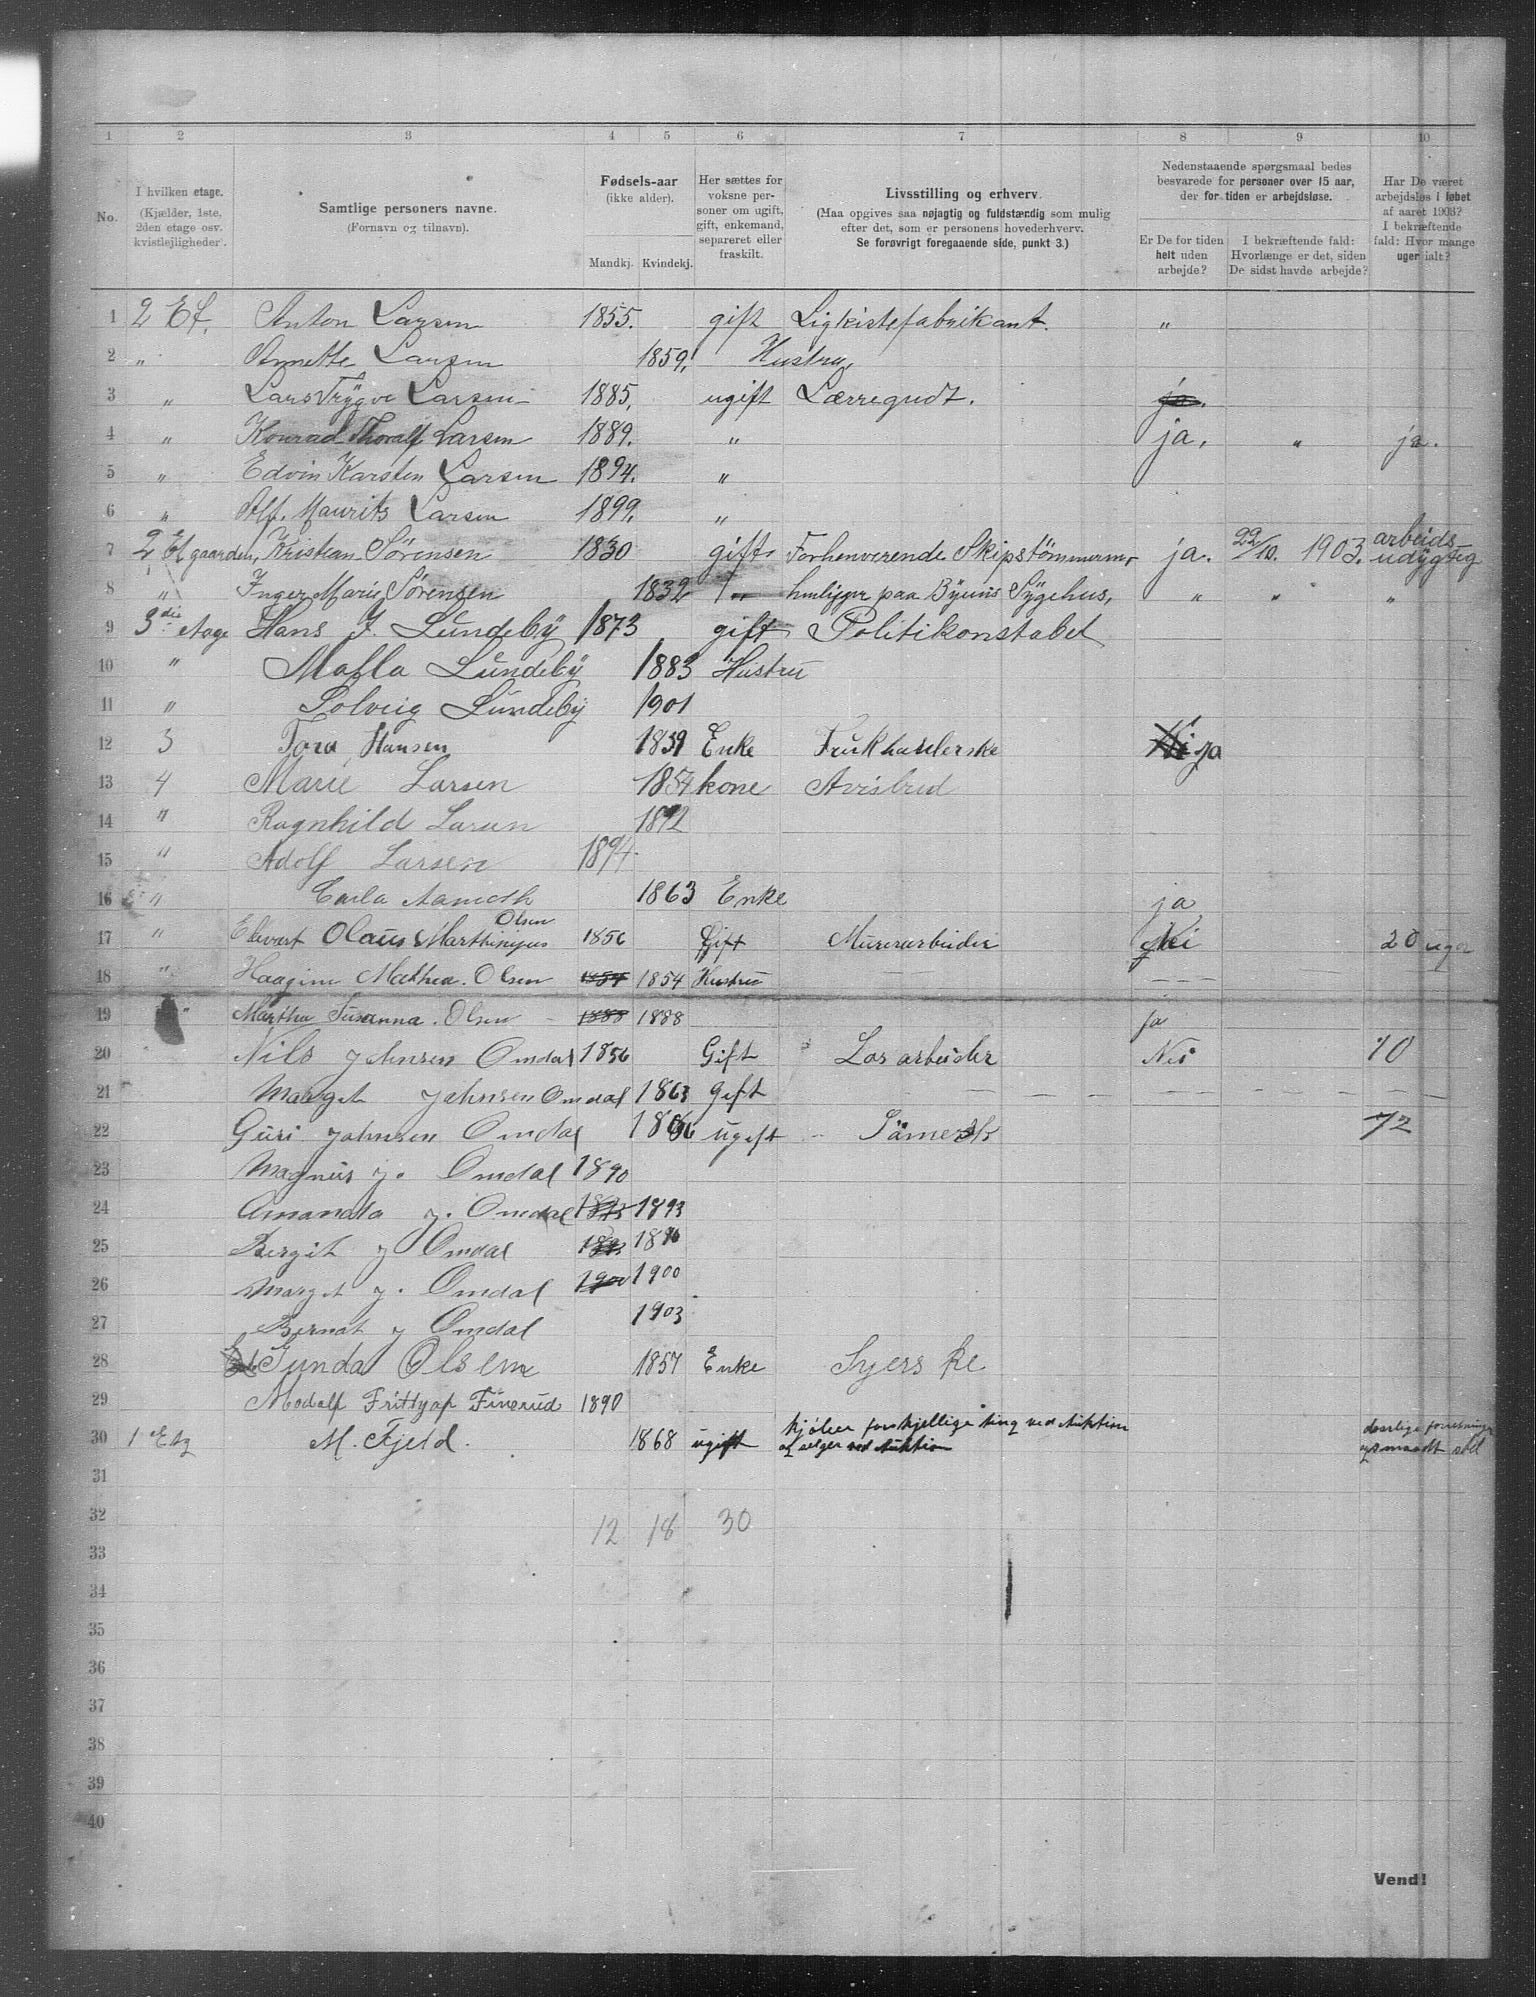 1 2 3 4 5 6 7 8 9 10
No.
I hvilken etage.
(Kjælder, 1ste,
2den etage osv.
kvistlejligheder).
Samtlige personers navne.
(Fornavn og tilnavn).
Fødsels-aar
(ikke alder).
Mandkj. Kvindekj.
Her sættes for
voksne per-
soner om ugift,
gift, enkemand,
separeret eller
fraskilt.
Livsstilling og erhverv.
(Maa opgives saa nøjagtig og fuldstændig som mulig
efter det, som er personens hovederhverv.
Se forøvrigt foregaaende side, punkt 3.)
Nedenstaaende spørgsmaal bedes
besvarede for personer over 15 aar,
der for tiden er arbejdsløse.
Er De for tiden
helt uden
arbejde?
I bekræftende fald:
Hvorlænge er det, siden
De sidst havde arbejde?
Har De været
arbejdsløs i løbet
af aaret 1903?
I bekræftende
fald: Hvor mange
uger ialt?
1 2 Et. Anton Larsen 1855. gift Ligkistefabrikant. "
2 " Annette Larsen 1859. Hustru,
3 " Lars Trygve Larsen 1885. ugift Lærregudt. ja.
4 " Konrad Thoralf Larsen 1889. " ja. " ja.
5 " Edvin Karsten Larsen 1894. "
6 " Alf. Maurits Larsen 1899. "
7 2 Et gaarden, Kristian Sørensen 1830 gift Forhenverende Skipstømmerm, ja. 22/10. 1903. arbeids udygtig
8 " Inger Marie Sørensen 1832 " paa Byens Sygehus, " " "
9 3die etage Hans J. Lundeby 1873 gift Politikonstabel
10 " Malla Lundeby 1883 Hustru
11 " Solveig Lundeby 1901
12 3 Tora Hansen 1839 Enke Frukthanlerske Nei ja
13 4 Marie Larsen 1854 kone Avisbud
14 " Ragnhild Larsen 1892
15 " Adolf Larsen 1894.
16 " Carla Aamoth 1863 Enke ja
17 " Edvart Olaus Marthinius Olsen 1856 Gift Murerarbeider Nei 20 uger
18 " Haagine Mathea. Olsen 1854 1854 Hustru — — —
19 " Martha Susanna. Olsen 1888 1888 ja
20 Nils Johnsen Omdal 1856 Gift Los arbeider Nei 10
21 Marget Johnsen Omdal 1863 Gift — — — — — —
22 Guri Johnsen Omdal ugift
23 Magnus J. Omdal 1890
24 Amanda J. Omdal 1893 1893
25 Bergit J Omdal 1896
26 Marget J. Omdal 1900 1900
27 Bernat J Omdal 1903
28 Gunda Olsen 1857 Enke Syerske
29 Modolf Frittjof Finerud 1890
30 1 Etg M. Fjeld. 1868 ugift kjøber forskjellige ting ved Auktion
og selger ved Auktion daarlige forretninger
og smaadt sell
31
32 12 18 30
33
34
35
36
37
38
39
40
Vend!